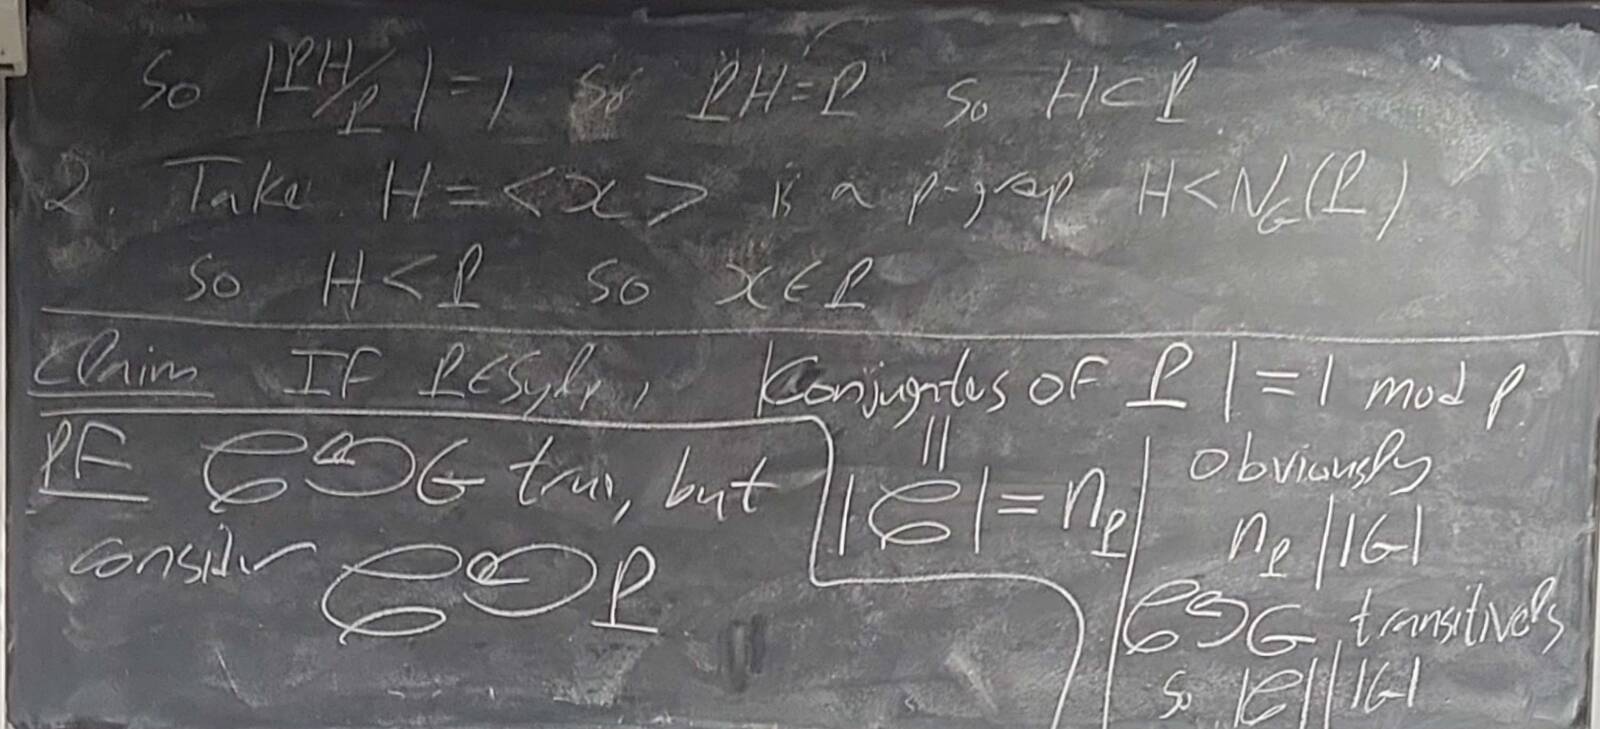 So |PH/P| = 1 so PH = P so H < P
2. Take H = <x> is a p-grop H < N_G(P)
so H < P so x ∈ P
Claim If P ∈ Sylp, |Conjugates of P| = 1 mod p
PF C ↻ G true, but
consider C ↻ P
||
|C| = n_P
Obviously
n_P | |G|
C ↻ G transitively
so |C| | |G|